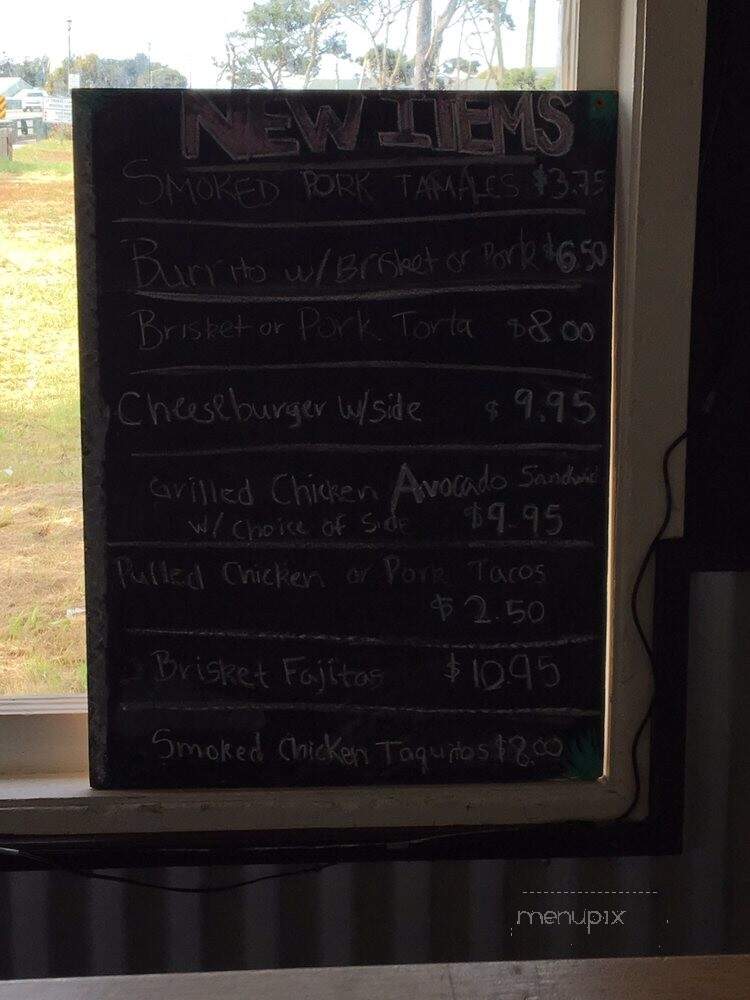 NEW ITEMS
SMOKED PORK TAMALES $3.75
Burrito w/Brisket or Pork $6.50
Brisket or Pork Torta $8.00
Cheeseburger w/side $9.95
Grilled Chicken Avocado Sandwich
w/ choice of Side $9.95
Pulled Chicken or Pork Tacos
$2.50
Brisket Fajitas $10.95
Smoked Chicken Taquitos $8.00
menupix